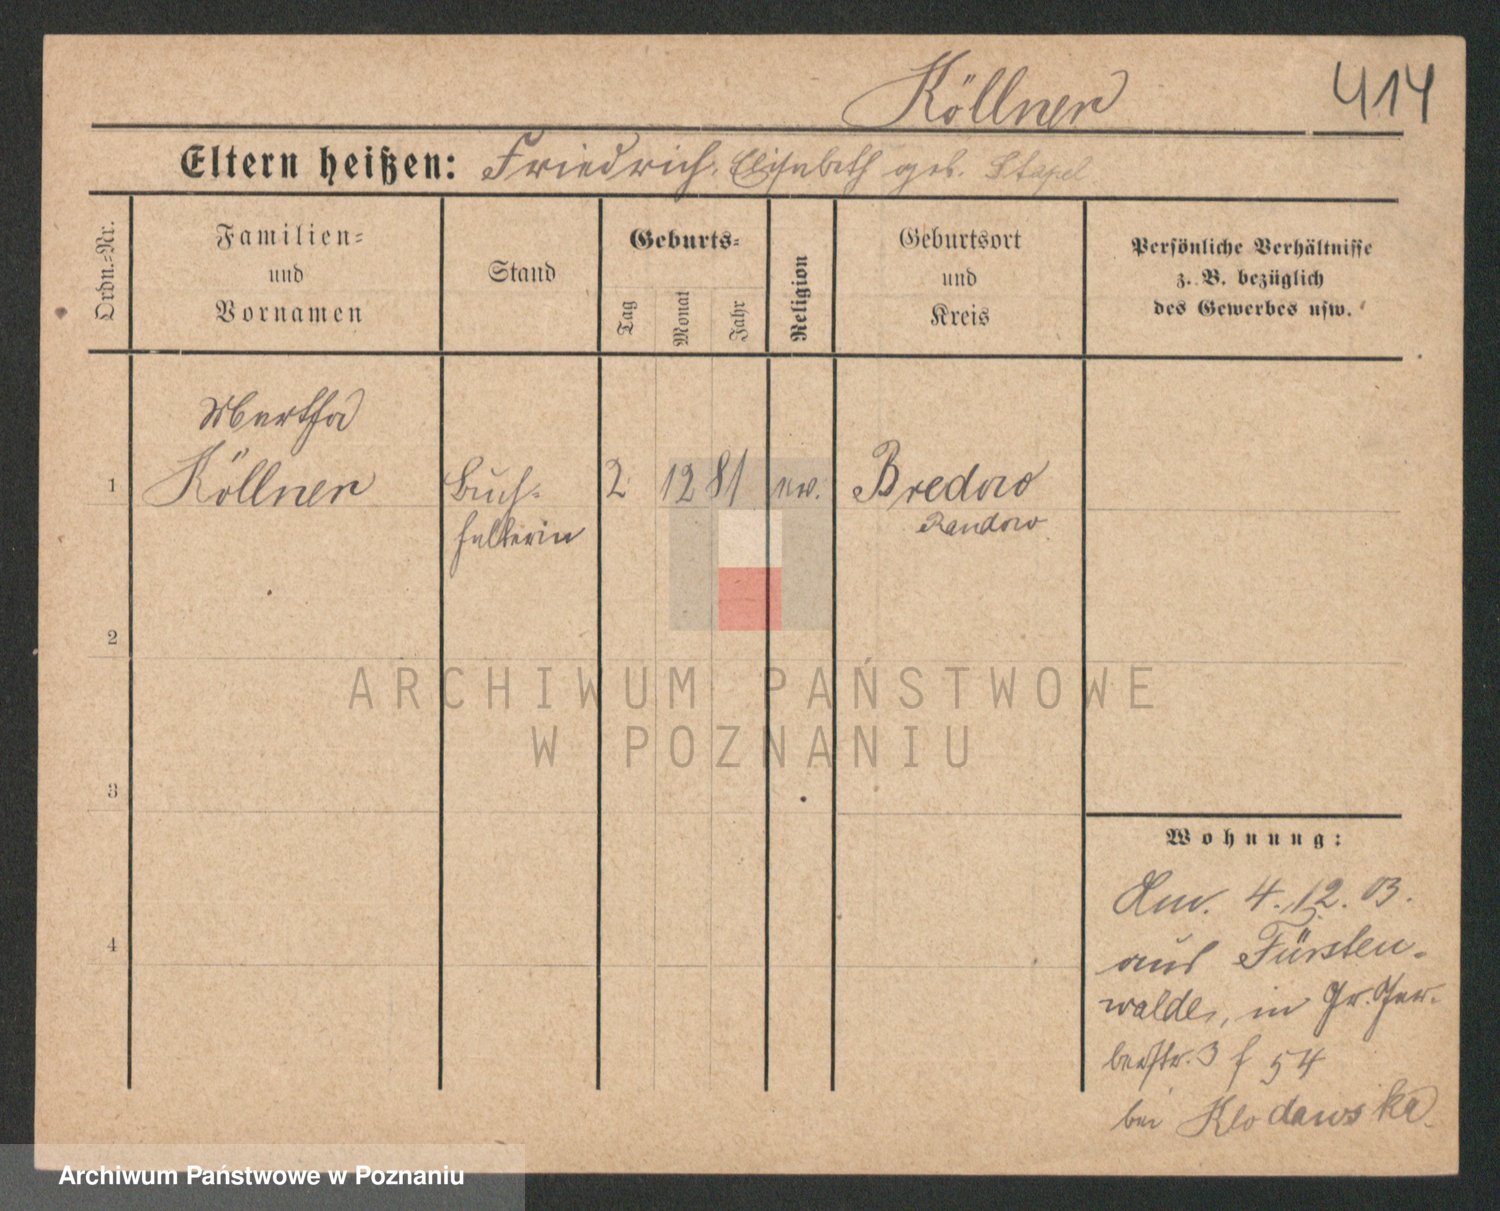 Köllner
414
Eltern heißen: Friedrich, Elisabeth geb. Stapel
Ordn.=Nr.
Familien=
und
Vornamen
Stand
Geburts=
Tag
Monat
Jahr
Religion
Geburtsort
und
Kreis
Persönliche Verhältnisse
z. B. bezüglich
des Gewerbes usw.
Martha
1 Köllner Buch= 2 12 81 ev. Bredow
halterin Randow
2
3
4
Wohnung:
4.12.03.
aus Fürsten-
walde, in Gr. Ger-
berstr. 3 f 54
bei Klodawska
ARCHIWUM PAŃSTWOWE
W POZNANIU
Archiwum Państwowe w Poznaniu